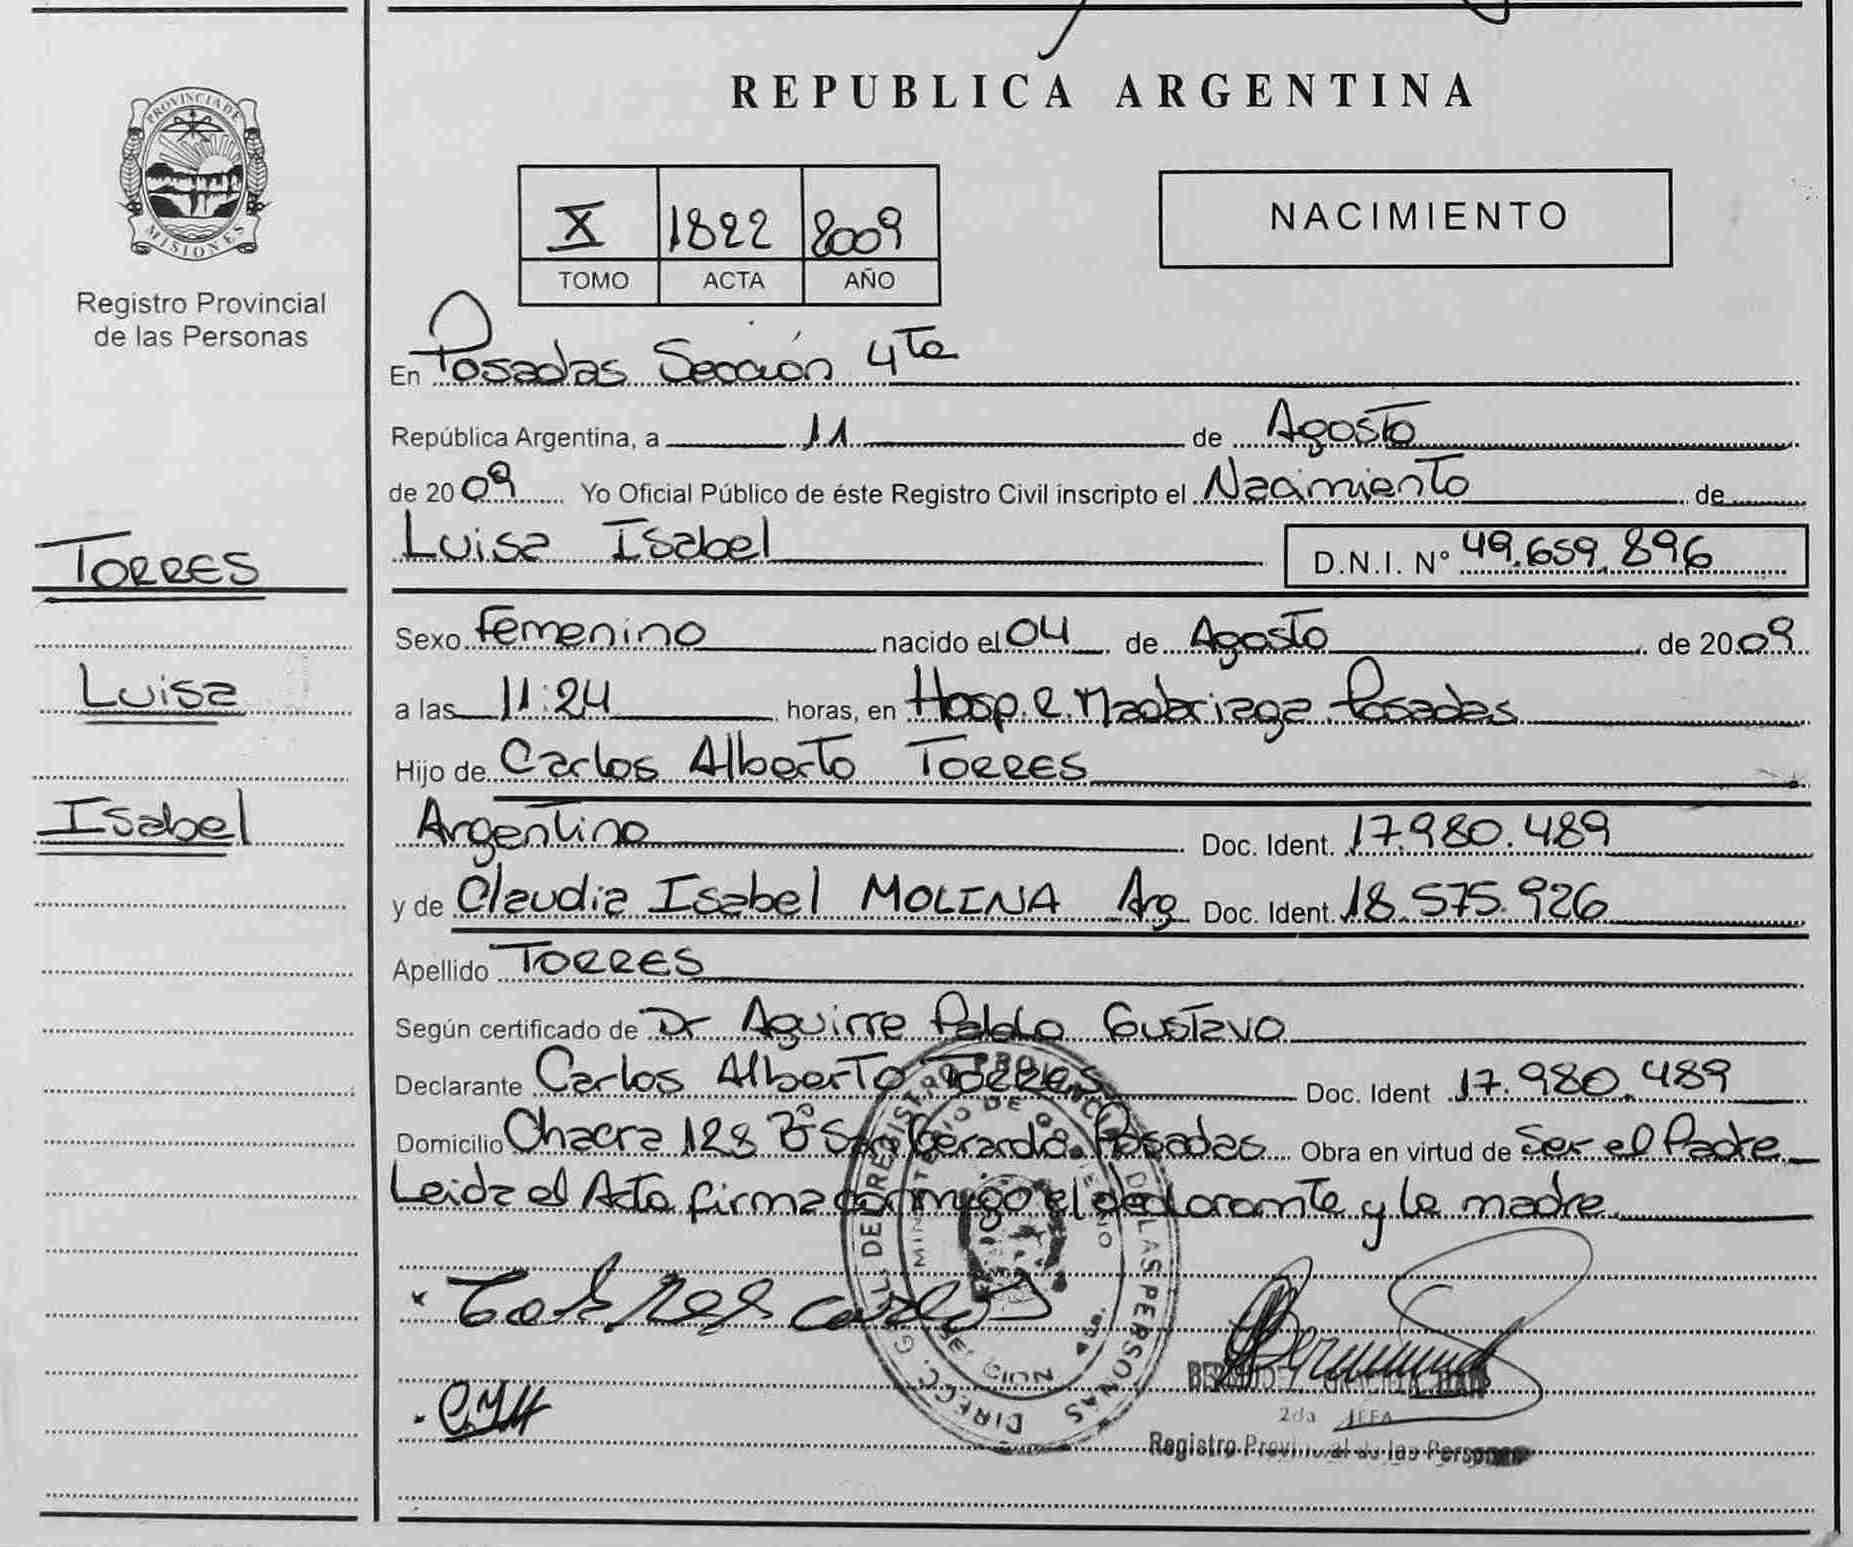 REPUBLICA ARGENTINA
PROVINCIA DE
MISIONES
Registro Provincial
de las Personas
X 1822 2009
TOMO ACTA AÑO
NACIMIENTO
En Posadas Sección 4ta
República Argentina, a 11 de Agosto
de 2009 Yo Oficial Público de éste Registro Civil inscripto el Nacimiento de
Luisa Isabel D.N.I. N° 49.659.896
TORRES
Luisa
Isabel
Sexo femenino nacido el 04 de Agosto de 2009
a las 11:24 horas, en Hosp. R. Madariaga Posadas
Hijo de Carlos Alberto TORRES
Argentino Doc. Ident. 17.980.489
y de Claudia Isabel MOLINA Arg Doc. Ident. 18.575.926
Apellido TORRES
Según certificado de Dr Aguirre Pablo Gustavo
Declarante Carlos Alberto TORRES Doc. Ident 17.980.489
Domicilio Chacra 128 B° San Gerardo. Posadas Obra en virtud de Ser el Padre
Leida el Acta firma conmigo el declarante y la madre
Torres Carlos
C.I.M
DIRECC. GRAL. DE REGISTRO PROVINCIAL DE LAS PERSONAS
MINISTERIO DE GOBIERNO
2da JEFA
Registro Provincial de las Personas